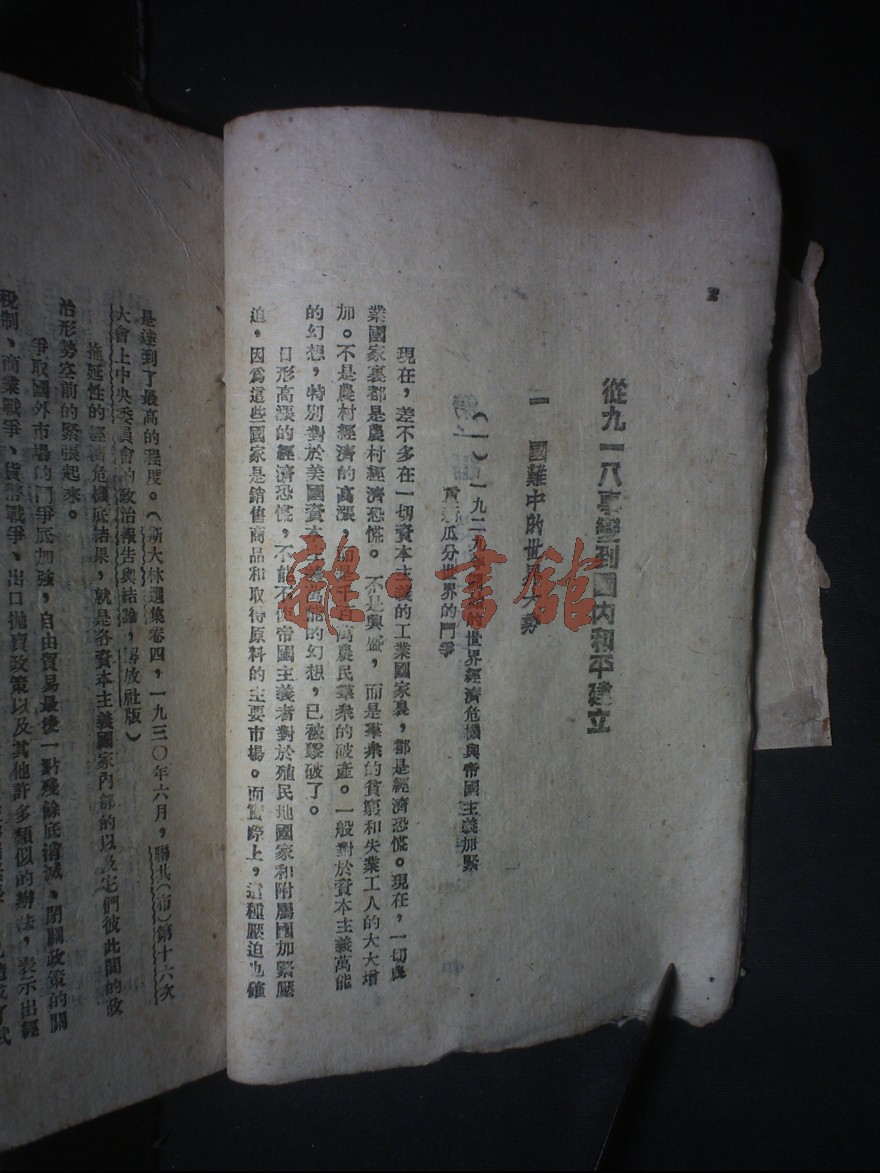 從九一八事變到國內和平建立
一 國難中的世界大勢
(一)一九二九年 的世界經濟危機與帝國主義加緊
重 瓜分世界的鬥爭
現在，差不多在一切資本主義的工業國家裏，都是經濟恐慌。現在，一切農
業國家裏都是農村經濟恐慌。不是興盛，而是羣衆的貧窮和失業工人的大大增
加。不是農村經濟的高漲， 千百萬農民羣衆的破產。一般對於資本主義萬能
的幻想，特別對於美國資本主義萬能的幻想，已被擊破了。
日形高漲的經濟恐慌，不能不使帝國主義者對於殖民地國家和附屬國加緊壓
迫，因爲這些國家是銷售商品和取得原料的主要市場。而實際上，這種壓迫也確
是達到了最高的程度。（斯大林選集卷四，一九三〇年六月，聯共（布）第十六次
大會上中央委員會的政治報告與結論，解放社版）
拖延性的經濟危機底結果，就是各資本主義國家內部的以及它們彼此間的政
治形勢空前的緊張起來。
爭取國外市場的鬥爭底加強，自由貿易最後一點殘餘底消滅、閉關政策的關
稅制、商業戰爭、貨幣戰爭、出口拋賣政策以及其他許多類似的辦法，表示出經
雜·書館